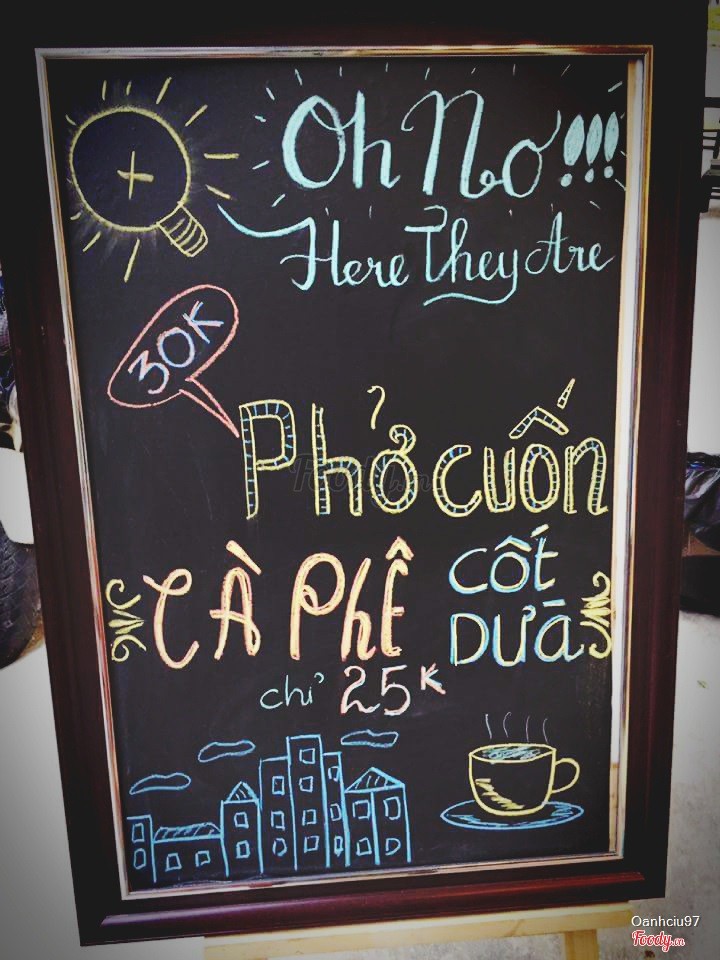 Oh No!!!
Here They Are
30K
Phở cuốn
CÀ PHÊ
CỐT
DỪA
chỉ 25K
Foody.vn
Oanhciu97
Foody.vn